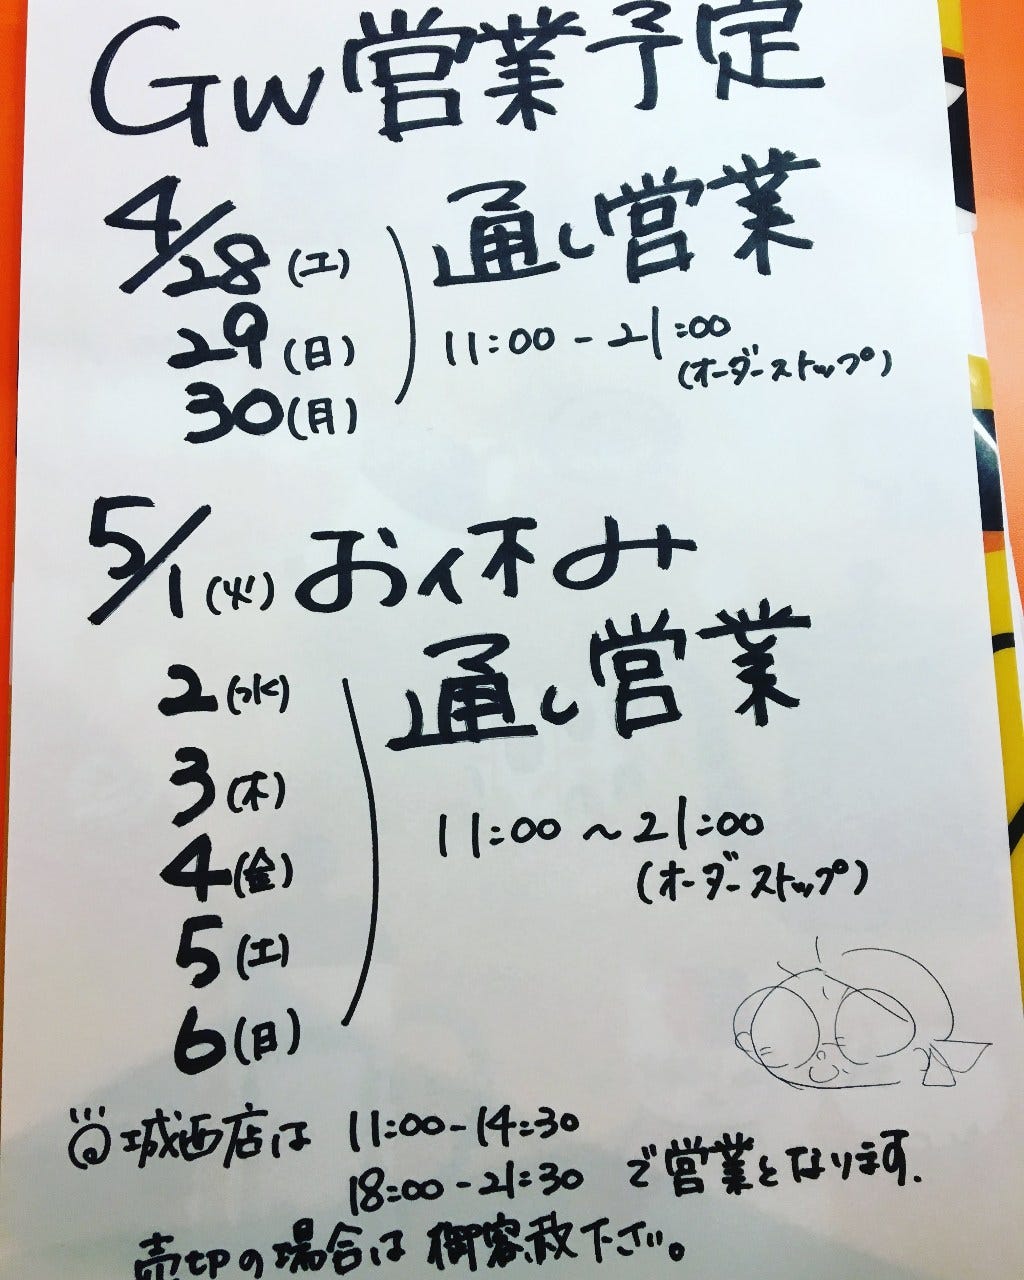 GW営業予定
4/28(土) 通し営業
29(日) 11:00-21:00
(オーダーストップ)
30(月)
5/1(火) お休み
2(水) 通し営業
3(木)
11:00~21:00
4(金) (オーダーストップ)
5(土)
6(日)
城西店は 11:00-14:30
18:00-21:30 で営業となります.
売切の場合は御容赦下さい。